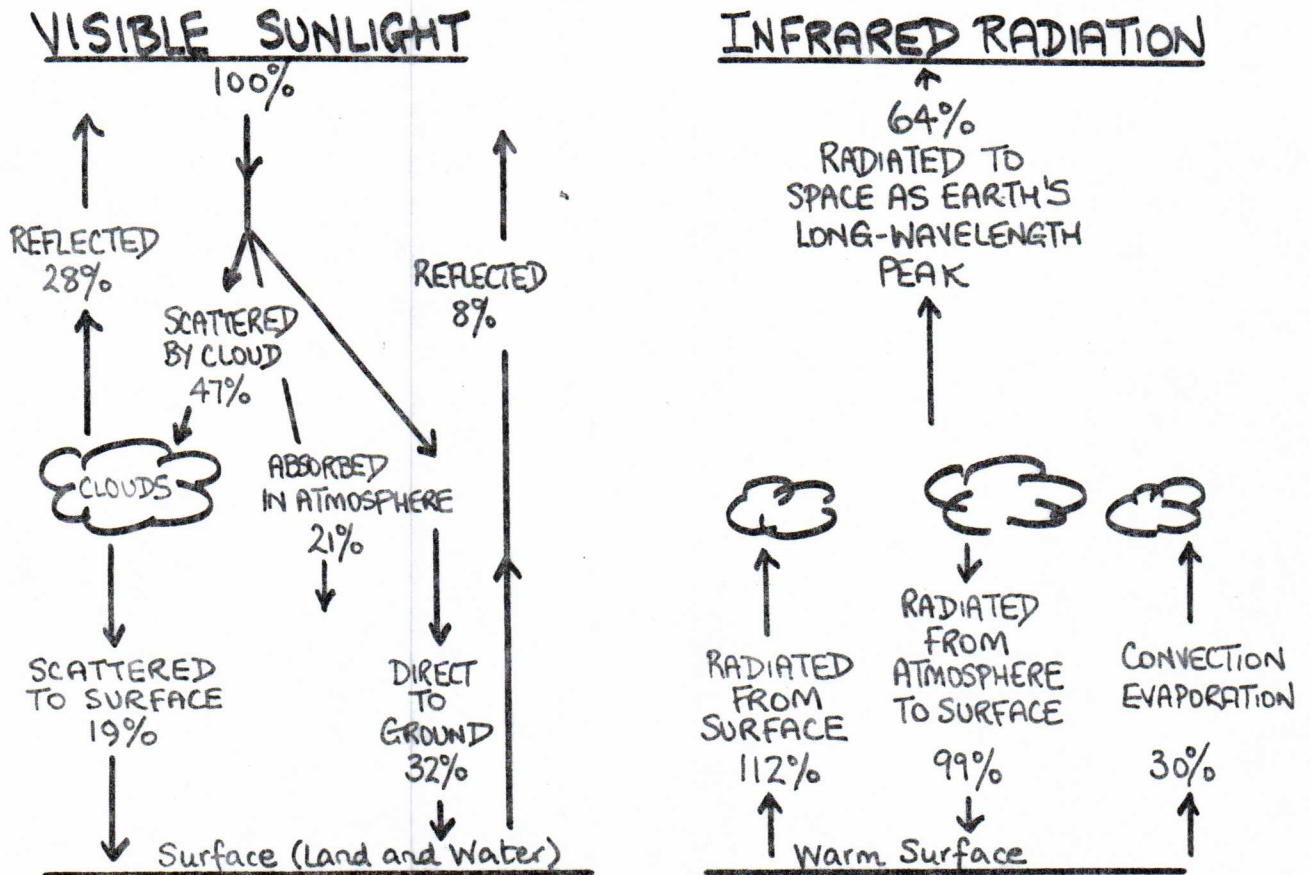 VISIBLE SUNLIGHT
100%
REFLECTED
28%
SCATTERED
BY CLOUD
47%
REFLECTED
8%
CLOUDS
ABSORBED
IN ATMOSPHERE
21%
SCATTERED
TO SURFACE
19%
DIRECT
TO
GROUND
32%
Surface (Land and Water)
INFRARED RADIATION
64%
RADIATED TO
SPACE AS EARTH'S
LONG-WAVELENGTH
PEAK
RADIATED
FROM
SURFACE
112%
RADIATED
FROM
ATMOSPHERE
TO SURFACE
99%
CONVECTION
EVAPORATION
30%
Warm Surface